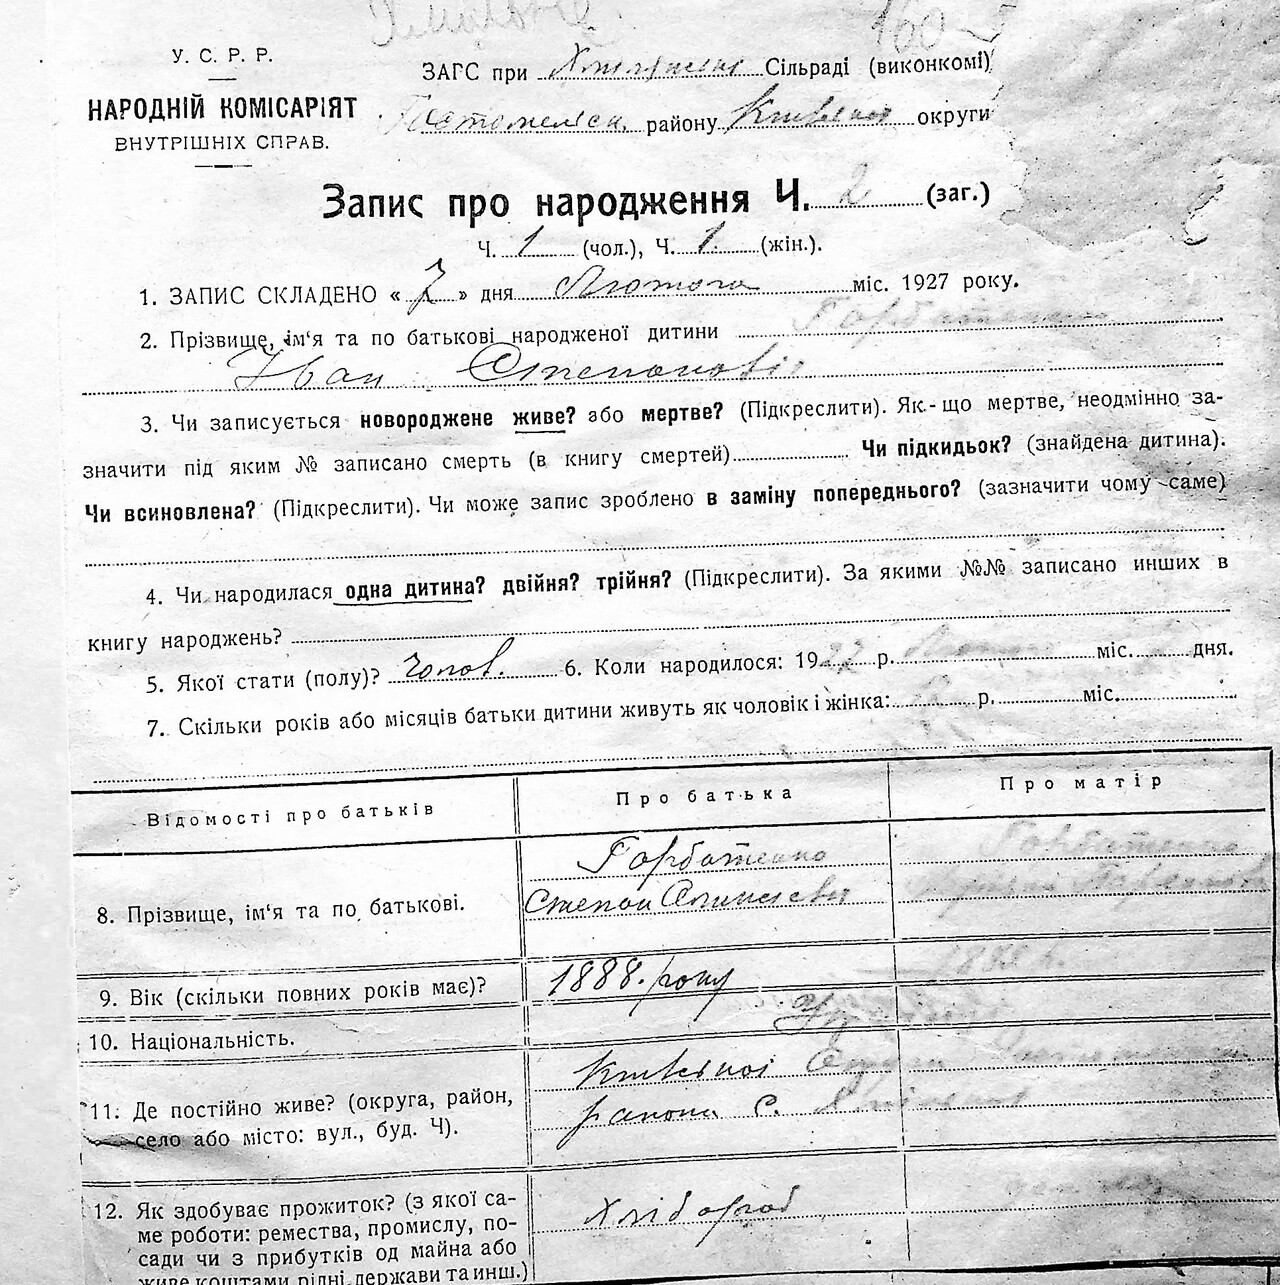 У. С. Р. Р.
НАРОДНІЙ КОМІСАРІЯТ
ВНУТРІШНІХ СПРАВ.
ЗАГС при Сільраді (виконкомі)
району Київської округи
Запис про народження Ч. 2 (заг.)
Ч. 1 (чол.), Ч. 1. (жін.).
1. ЗАПИС СКЛАДЕНО « 7 » дня Лютого міс. 1927 року.
2. Прізвище, ім'я та по батькові народженої дитини Горбатенко
Іван Степанові
3. Чи записується новороджене живе? або мертве? (Підкреслити). Як-що мертве, неодмінно за-
значити під яким № записано смерть (в книгу смертей) Чи підкидьок? (знайдена дитина).
Чи всиновлена? (Підкреслити). Чи може запис зроблено в заміну попереднього? (зазначити чому саме)
4. Чи народилася одна дитина? двійня? трійня? (Підкреслити). За якими №№ записано инших в
книгу народжень?
5. Якої стати (полу)? чолов. 6. Коли народилося: 1927 р. Лютого міс. дня.
7. Скільки років або місяців батьки дитини живуть як чоловік і жінка: р. міс.
Відомості про батьків Про батька Про матір
8. Прізвище, ім'я та по батькові.
Горбатенко Горбатенко
Степан
9. Вік (скільки повних років має)? 1888. року
10. Національність.
11. Де постійно живе? (округа, район,
село або місто: вул., буд. Ч).
Київської
району с.
12. Як здобуває прожиток? (з якої са-
ме роботи: ремества, промислу, по-
сади чи з прибутків од майна або
живе коштами рідні, держави та инш.)
Хлібороб